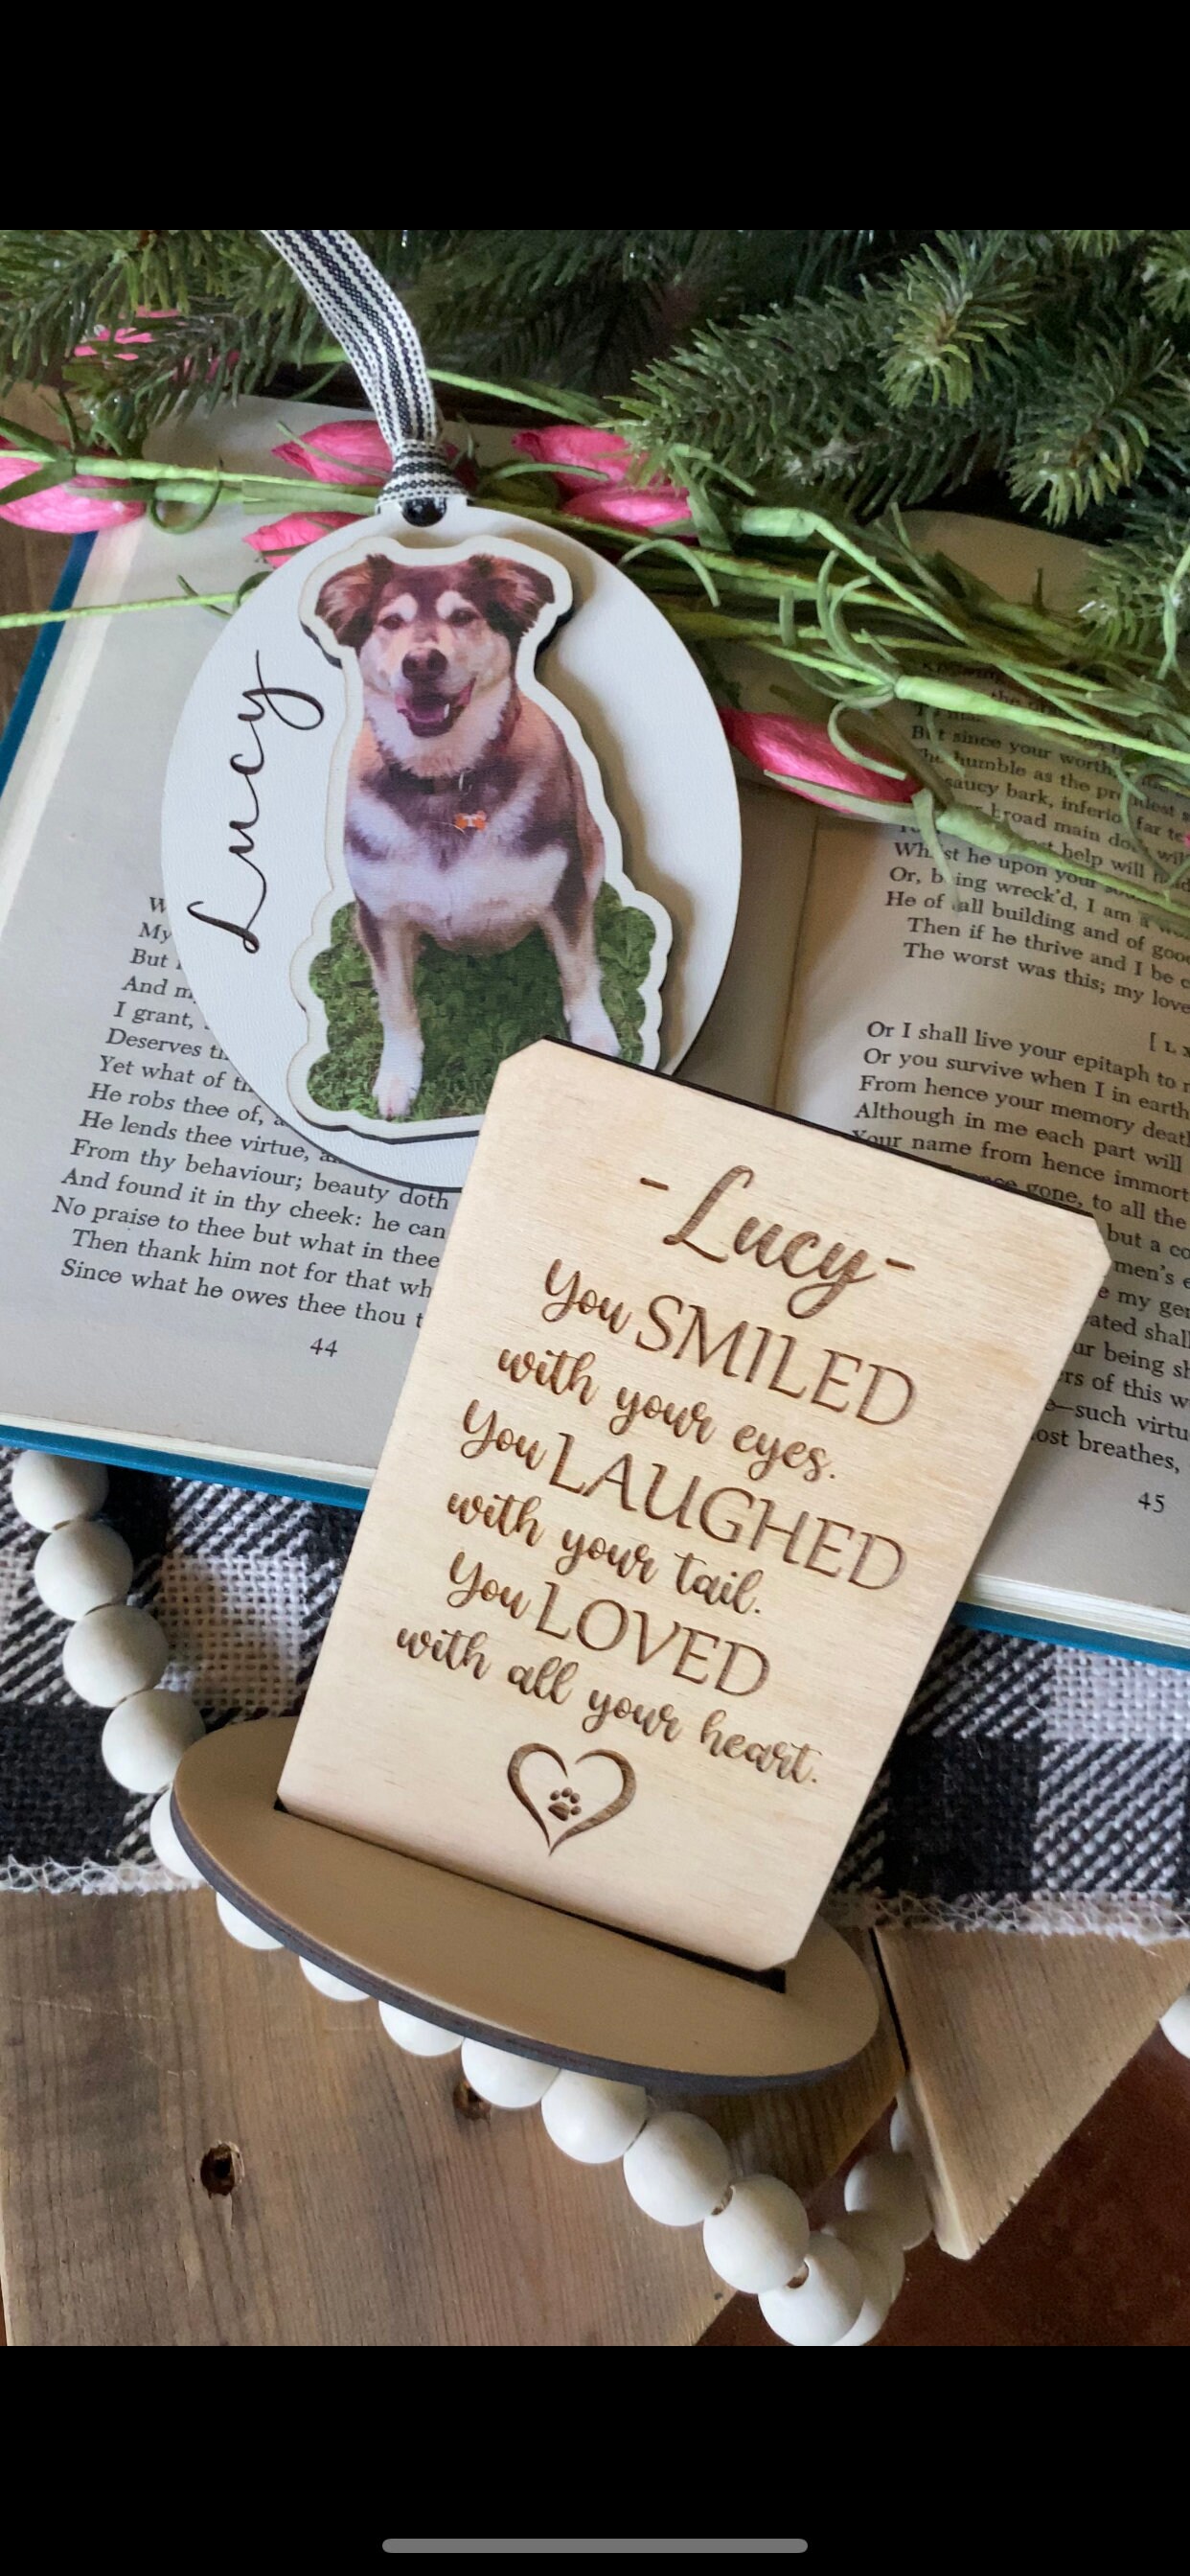 Lucy
- Lucy -
You SMILED
with your eyes.
You LAUGHED
with your tail.
You LOVED
with all your heart.
My
But
And
I grant,
Deserves
Yet what of
He robs thee of,
He lends thee virtue,
From thy behaviour; beauty doth
And found it in thy cheek: he can
No praise to thee but what in thee
Then thank him not for that
Since what he owes thee thou
44
But since your worth
humble as the
saucy bark, inferior far
broad main
help will
Whilst he upon your
Or, being wreck'd, I am a
He of all building and of
Then if he thrive and I be
The worst was this; my love
Or I shall live your epitaph to
Or you survive when I in earth
From hence your memory
Although in me each part will
Your name from hence
gone, to all the
but a
men's
my
shall
being
of this
—such
breathes,
45